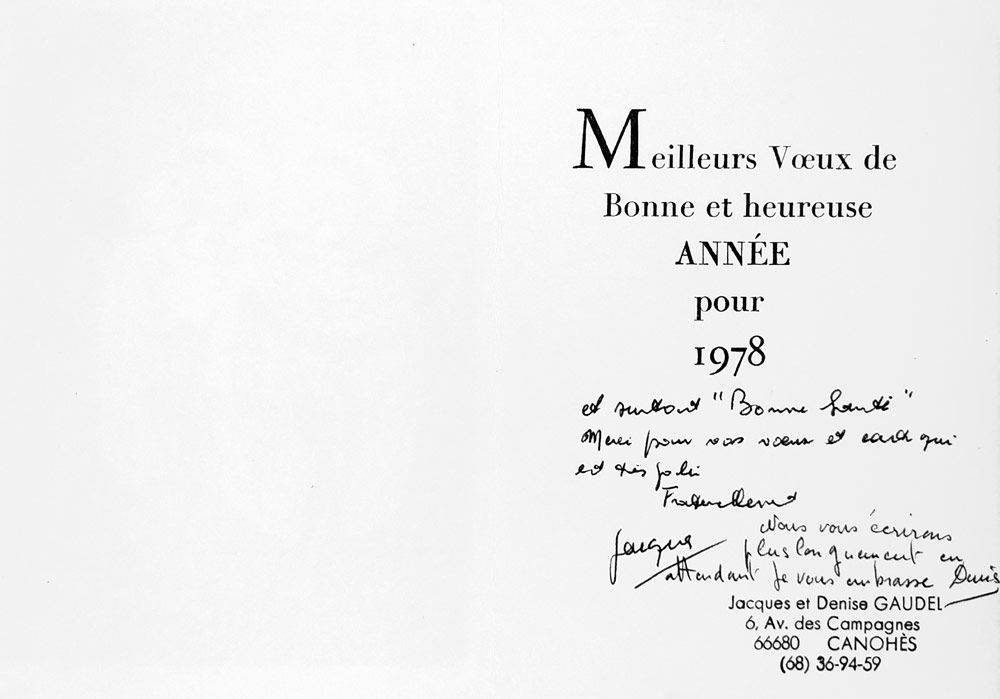 Meilleurs Vœux de
Bonne et heureuse
ANNÉE
pour
1978
et surtout "Bonne Santé"
Merci pour vos vœux et carte qui
est très jolie
Fraternellement
Jacques
Nous vous écrirons
plus longuement en
attendant je vous embrasse Denise
Jacques et Denise GAUDEL
6, Av. des Campagnes
66680 CANOHÈS
(68) 36-94-59